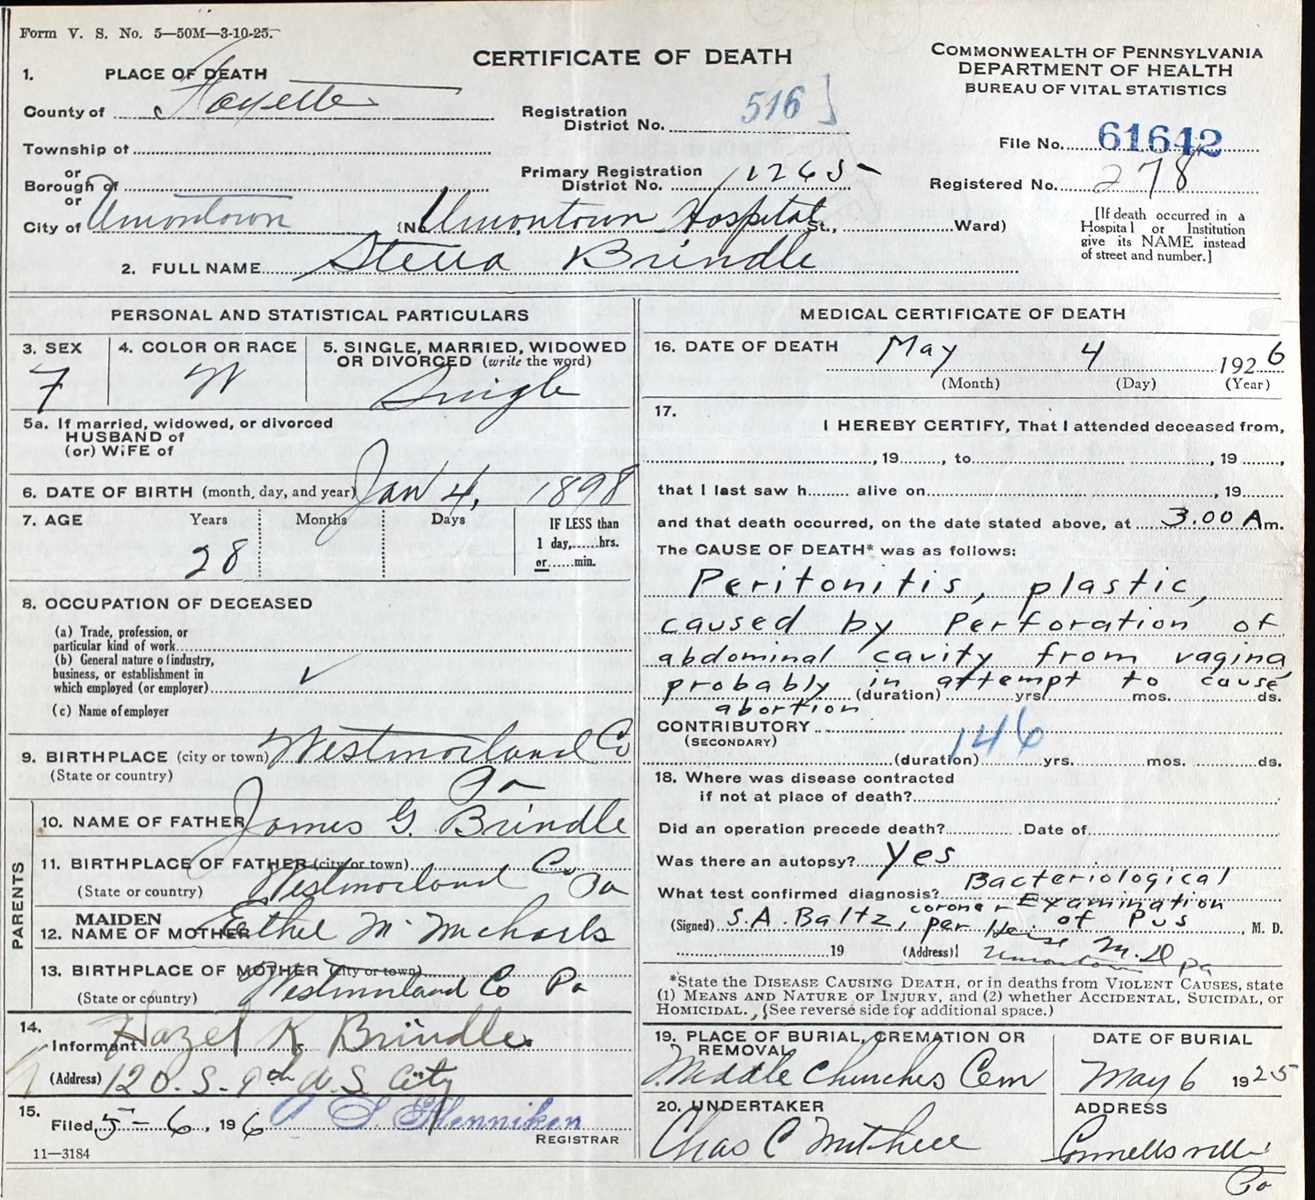 Form V. S. No. 5—50M—3-10-25.
CERTIFICATE OF DEATH
COMMONWEALTH OF PENNSYLVANIA
DEPARTMENT OF HEALTH
BUREAU OF VITAL STATISTICS
1. PLACE OF DEATH
County of Fayette
Registration District No. 516
File No. 61642
Township of
or
Borough of
Primary Registration District No. 1265
Registered No. 278
or
City of Uniontown (No. Uniontown Hospital St., Ward)
[If death occurred in a Hospital or Institution give its NAME instead of street and number.]
2. FULL NAME Stella Brindle
PERSONAL AND STATISTICAL PARTICULARS
3. SEX F
4. COLOR OR RACE W
5. SINGLE, MARRIED, WIDOWED OR DIVORCED (write the word) Single
5a. If married, widowed, or divorced
HUSBAND of
(or) WIFE of
6. DATE OF BIRTH (month, day, and year) Jan 4, 1898
7. AGE Years Months Days IF LESS than
28
1 day, hrs.
or min.
8. OCCUPATION OF DECEASED
(a) Trade, profession, or particular kind of work
(b) General nature of industry, business, or establishment in which employed (or employer)
(c) Name of employer
9. BIRTHPLACE (city or town) Westmorland Co
(State or country) Pa
PARENTS
10. NAME OF FATHER James G. Brindle
11. BIRTHPLACE OF FATHER (city or town)
(State or country) Westmorland Co Pa
12. MAIDEN NAME OF MOTHER Esthel McMichaels
13. BIRTHPLACE OF MOTHER (city or town)
(State or country) Westmorland Co Pa
14. Informant Hazel K Brindle
(Address) 120. S. 9th W. S. City
15. Filed 5-6, 1926
REGISTRAR
11—3184
MEDICAL CERTIFICATE OF DEATH
16. DATE OF DEATH May 4 1926
(Month) (Day) (Year)
17. I HEREBY CERTIFY, That I attended deceased from,
, 19 , to , 19 ,
that I last saw h alive on , 19
and that death occurred, on the date stated above, at 3.00 A m.
The CAUSE OF DEATH* was as follows:
Peritonitis, plastic,
caused by Perforation of
abdominal cavity from vagina
probably in attempt to cause
(duration) yrs. mos. ds.
abortion
CONTRIBUTORY
(SECONDARY)
146
(duration) yrs. mos. ds.
18. Where was disease contracted
if not at place of death?
Did an operation precede death? Date of
Was there an autopsy? Yes
What test confirmed diagnosis? Bacteriological
Examination of pus
(Signed) S.A. Baltz, coroner per Heise M.D, M. D.
19 (Address) Uniontown Pa
*State the DISEASE CAUSING DEATH, or in deaths from VIOLENT CAUSES, state
(1) MEANS AND NATURE OF INJURY, and (2) whether ACCIDENTAL, SUICIDAL, or
HOMICIDAL. (See reverse side for additional space.)
19. PLACE OF BURIAL, CREMATION OR REMOVAL
Middle Churches Cem
DATE OF BURIAL
May 6 1925
20. UNDERTAKER
Chas C Mitchell
ADDRESS
Connellsville
Pa